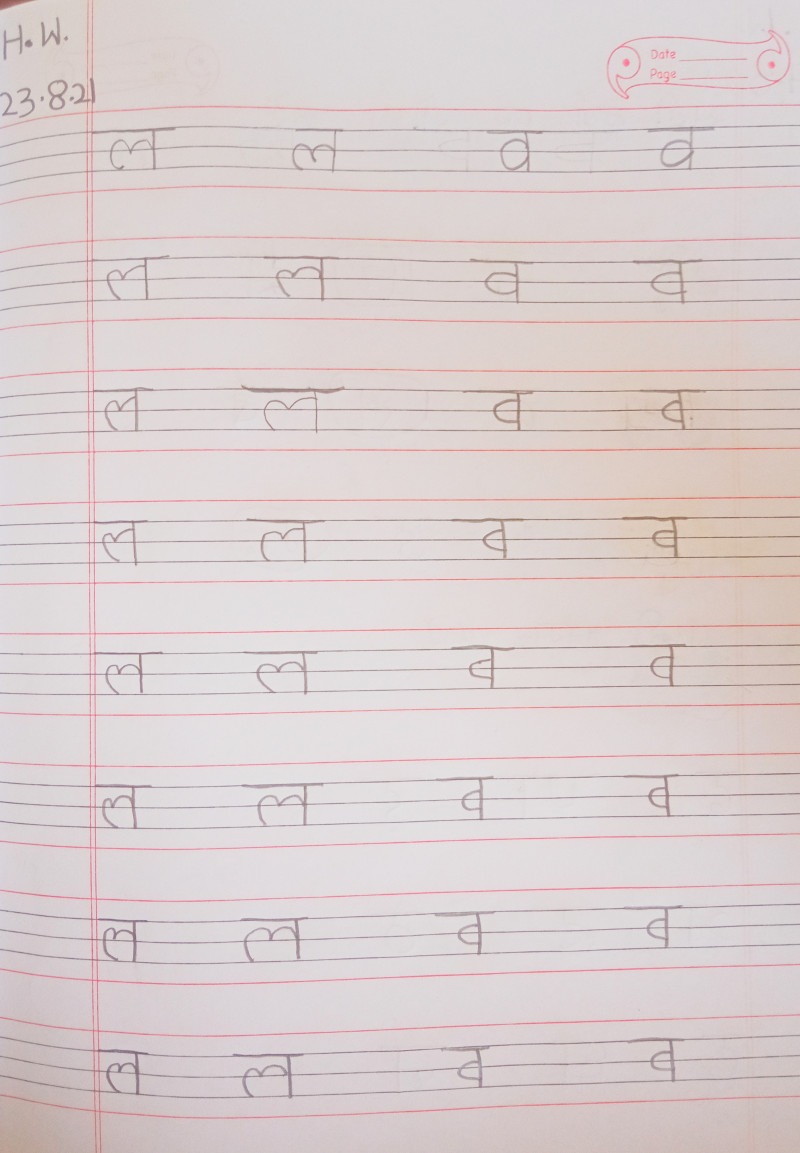 H.W.
Date
23.8.21
Page
ल ल व व
ल ल व व
ल ल व व
ल ल व व
ल ल व व
ल ल व व
ल ल व व
ल ल व व